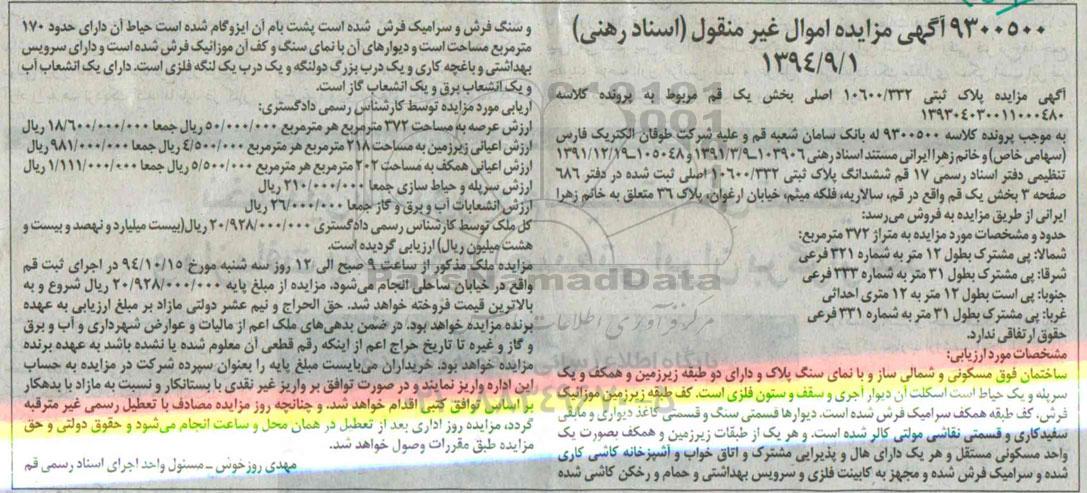 ۹۳۰۰۵۰۰ آگهی مزایده اموال غیر منقول (اسناد رهنی)
۱۳۹۴/۹/۱
آگهی مزایده پلاک ثبتی ۱۰۶۰۰/۳۳۲ اصلی بخش یک قم مربوط به پرونده کلاسه
۱۳۹۳۰۴۰۳۰۰۱۱۰۰۰۴۸۰
به موجب پرونده کلاسه ۹۳۰۰۵۰۰ له بانک سامان شعبه قم و علیه شرکت طوفان الکتریک فارس
(سهامی خاص) و خانم زهرا ایرانی مستند اسناد رهنی ۱۰۳۹۰۶-۱۳۹۱/۳/۹ و ۱۰۵۰۴۸-۱۳۹۱/۱۲/۱۹
تنظیمی دفتر اسناد رسمی ۱۷ قم ششدانگ پلاک ثبتی ۱۰۶۰۰/۳۳۲ اصلی ثبت شده در دفتر ۶۸۶
صفحه ۳ بخش یک قم واقع در قم، سالاریه، فلکه میثم، خیابان ارغوان، پلاک ۳۶ متعلق به خانم زهرا
ایرانی از طریق مزایده به فروش می‌رسد:
حدود و مشخصات مورد مزایده به متراژ ۳۷۲ مترمربع:
شمالا: پی مشترک بطول ۱۲ متر به شماره ۳۲۱ فرعی
شرقا: پی مشترک بطول ۳۱ متر به شماره ۳۳۳ فرعی
جنوبا: پی است بطول ۱۲ متر به ۱۲ متری احداثی
غربا: پی مشترک بطول ۳۱ متر به شماره ۳۳۱ فرعی
حقوق ارتفاقی ندارد.
مشخصات مورد ارزیابی:
ساختمان فوق مسکونی و شمالی ساز و با نمای سنگ پلاک و دارای دو طبقه زیرزمین و همکف و یک
سرپله و یک حیاط است اسکلت آن دیوار آجری و سقف و ستون فلزی است. کف طبقه زیرزمین موزائیک
فرش، کف طبقه همکف سرامیک فرش شده است. دیوارها قسمتی سنگ و قسمتی کاغذ دیواری و مابقی
سفیدکاری و قسمتی نقاشی مولتی کالر شده است. و هر یک از طبقات زیرزمین و همکف بصورت یک
واحد مسکونی مستقل و هر یک دارای هال و پذیرایی مشترک و اتاق خواب و آشپزخانه کاشی کاری
شده و سرامیک فرش شده و مجهز به کابینت فلزی و سرویس بهداشتی و حمام و رخکن کاشی شده
و سنگ فرش و سرامیک فرش شده است پشت بام آن ایزوگام شده است حیاط آن دارای حدود ۱۷۰
مترمربع مساحت است و دیوارهای آن با نمای سنگ و کف آن موزائیک فرش شده است و دارای سرویس
بهداشتی و باغچه کاری و یک درب بزرگ دولنگه و یک درب یک لنگه فلزی است. دارای یک انشعاب آب
و یک انشعاب برق و یک انشعاب گاز است.
ارزیابی مورد مزایده توسط کارشناس رسمی دادگستری:
ارزش عرصه به مساحت ۳۷۲ مترمربع هر مترمربع ۵۰/۰۰۰/۰۰۰ ریال جمعا ۱۸/۶۰۰/۰۰۰/۰۰۰ ریال
ارزش اعیانی زیرزمین به مساحت ۲۱۸ مترمربع هر مترمربع ۴/۵۰۰/۰۰۰ ریال جمعا ۹۸۱/۰۰۰/۰۰۰ ریال
ارزش اعیانی همکف به مساحت ۲۰۲ مترمربع هر مترمربع ۵/۵۰۰/۰۰۰ ریال جمعا ۱/۱۱۱/۰۰۰/۰۰۰ ریال
ارزش سرپله و حیاط سازی جمعا ۲۱۰/۰۰۰/۰۰۰ ریال
ارزش انشعابات آب و برق و گاز جمعا ۲۶/۰۰۰/۰۰۰ ریال
کل ملک توسط کارشناس رسمی دادگستری ۲۰/۹۲۸/۰۰۰/۰۰۰ ریال(بیست میلیارد و نهصد و بیست و
هشت میلیون ریال) ارزیابی گردیده است.
مزایده ملک مذکور از ساعت ۹ صبح الی ۱۲ روز سه شنبه مورخ ۹۴/۱۰/۱۵ در اجرای ثبت قم
واقع در خیابان ساحلی انجام می‌شود. مزایده از مبلغ پایه ۲۰/۹۲۸/۰۰۰/۰۰۰ ریال شروع و به
بالاترین قیمت فروخته خواهد شد. حق الحراج و نیم عشر دولتی مازاد بر مبلغ ارزیابی به عهده
برنده مزایده خواهد بود. در ضمن بدهی‌های ملک اعم از مالیات و عوارض شهرداری و آب و برق
و گاز و غیره تا تاریخ حراج اعم از اینکه رقم قطعی آن معلوم شده یا نشده باشد به عهده برنده
مزایده خواهد بود. خریداران می‌بایست مبلغ پایه را بعنوان سپرده شرکت در مزایده به حساب
این اداره واریز نمایند و در صورت توافق بر واریز غیر نقدی با بستانکار و نسبت به مازاد با بدهکار
بر اساس توافق کتبی اقدام خواهد شد. و چنانچه روز مزایده مصادف با تعطیل رسمی غیر مترقبه
گردد، مزایده روز اداری بعد از تعطیل در همان محل و ساعت انجام می‌شود و حقوق دولتی و حق
مزایده طبق مقررات وصول خواهد شد.
مهدی روزخوش – مسئول واحد اجرای اسناد رسمی قم